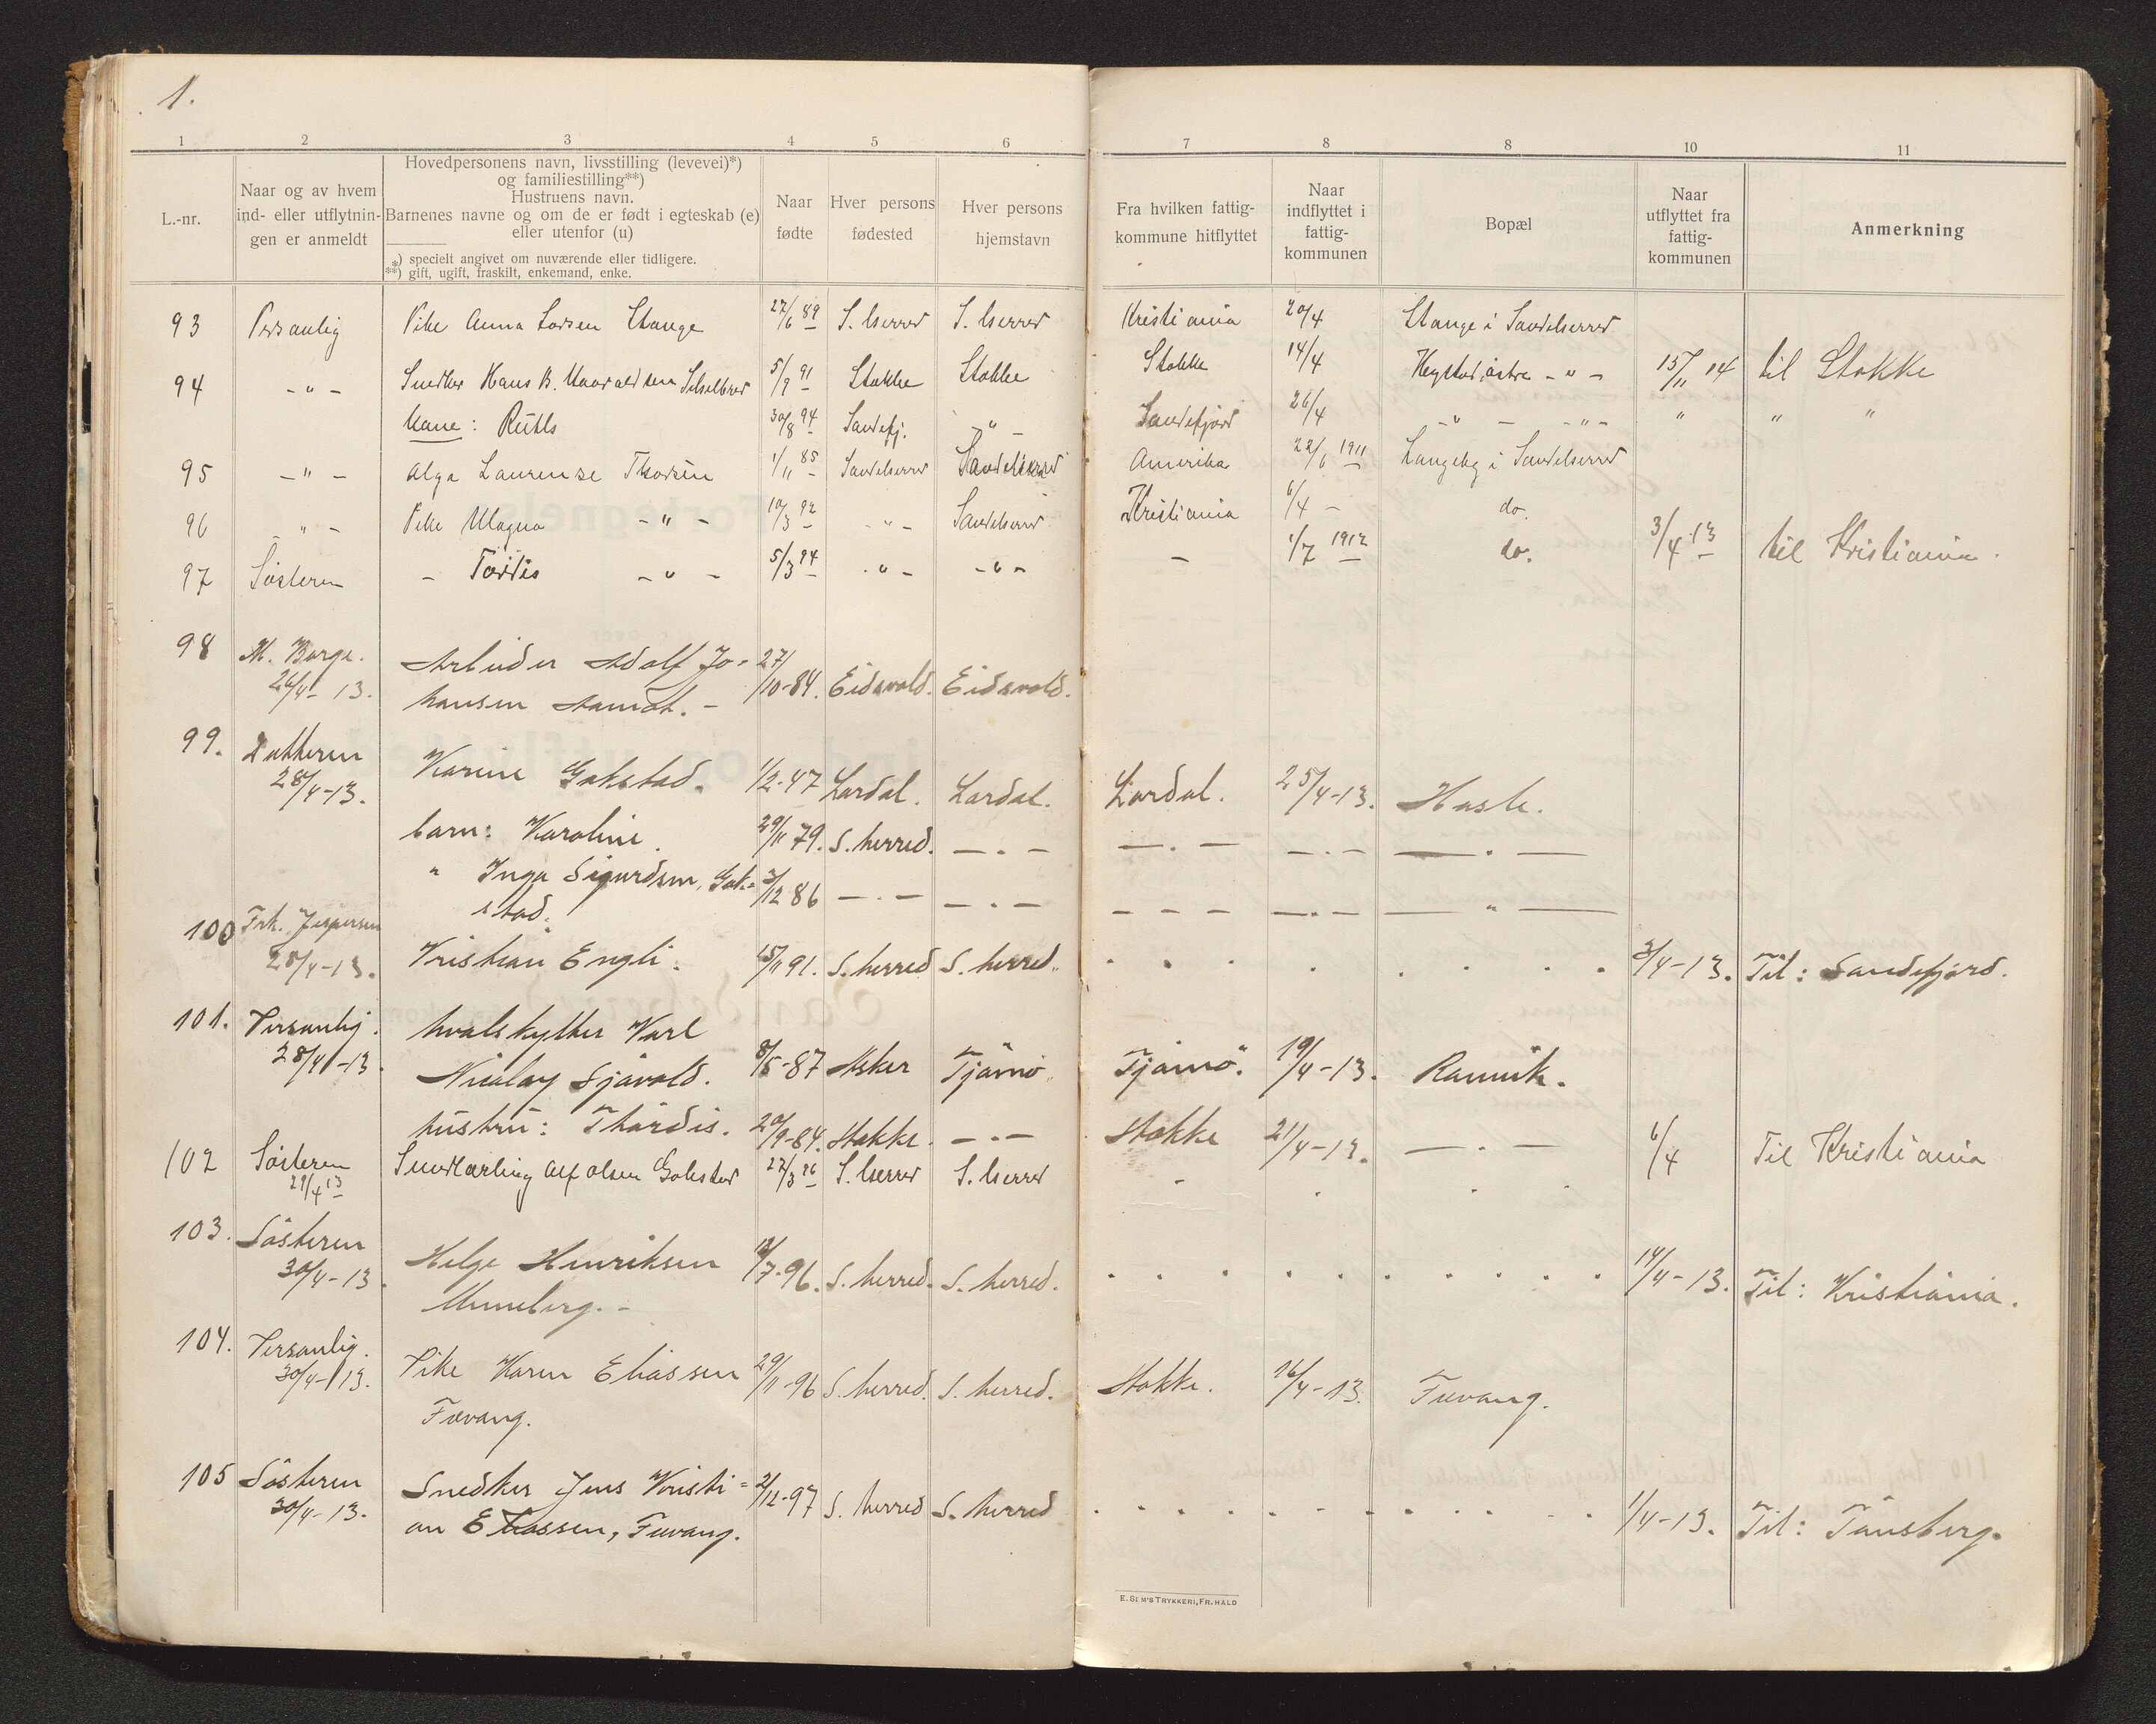 1.
1 2 3 4 5 6 7 8 8 10 11
L.-nr.
Naar og av hvem
ind- eller utflytnin-
gen er anmeldt
Hovedpersonens navn, livsstilling (levevei)*)
og familiestilling**)
Hustruens navn.
Barnenes navne og om de er født i egteskab (e)
eller utenfor (u)
*) specielt angivet om nuværende eller tidligere.
**) gift, ugift, fraskilt, enkemand, enke.
Naar
fødte
Hver persons
fødested
Hver persons
hjemstavn
Fra hvilken fattig-
kommune hitflyttet
Naar
indflyttet i
fattig-
kommunen
Bopæl
Naar
utflyttet fra
fattig-
kommunen
Anmerkning
93 Personlig Pike Anna Larsen Stange 27/6 89 S. herred S. herred Kristiania 20/4 Stange i Sandeherred
94 - " - Snedker Hans B. 5/9 91 Stokke Stokke Stokke 14/4 østre - " - 15/11 14 til Stokke
Kone: Ruth 30/8 94 Sandefj. - " - Sandefjord 26/4 - " - - " - " " "
95 - " - Olga Laurense Thorsen 1/11 85 Sandeherred Sandeherred Amerika 22/6 1911 Langeby i Sandeherred
96 - " - Pike Magna - " - 10/3 92 - " - Sandeherred Kristiania 6/4 - do.
97 Søsteren - Tordis - " - 5/3 94 - " - - " - - 1/7 1912 do. 3/4 -13 til Kristiania.
98 M. Borge.
26/4-13.
Arbeider Adolf Jo-
hansen 27/10-84. Eidsvold. Eidsvold.
99. Datteren
28/4-13.
Karine Gokstad. 1/2-47 Lardal. Lardal. Lardal. 25/4-13. Hasle.
barn: Karoline. 29/11 79. S. herred. - . - - . - - . - - . -
" Inga Sigurdsen, Gok- 3/12 86 - . - - . - - - - - . - - " -
stad.
100 Frk. Jespersen
28/4-13.
Kristian Engli. 15/11 91. S. herred S. herred. 3/4-13. Til: Sandefjord.
101. Personlig.
28/4-13.
hvalskytter Karl
Nicolay Sjåvold. 8/5-87 Asker Tjømø Tjømø. 19/4-13. Ranvik.
hustru: Thordis. 20/9-84. Stokke. - . - Stokke 21/4-13. - . -
102 Søsteren
29/4 13
Smedlærling Alf Olsen Gokstad 27/3 96 S. herred S. herred 6/4 Til Kristiania
103. Søsteren
30/4-13.
Helge Henriksen
Muneberg. - 12/7-96. S. herred. S. herred. 14/4-13. Til: Kristiania.
104. Personlig.
30/4-13.
Pike Karen Eliassen
Fevang. 29/11-96 S. herred. S. herred. Stokke. 16/4-13. Fevang.
105 Søsteren
30/4-13.
Snedker Jens Kristi-
an Eliassen, Fevang. 2/12-97 S. herred S. herred 1/4-13. Til: Tønsberg.
E. SEM'S TRYKKERI, FR.HALD